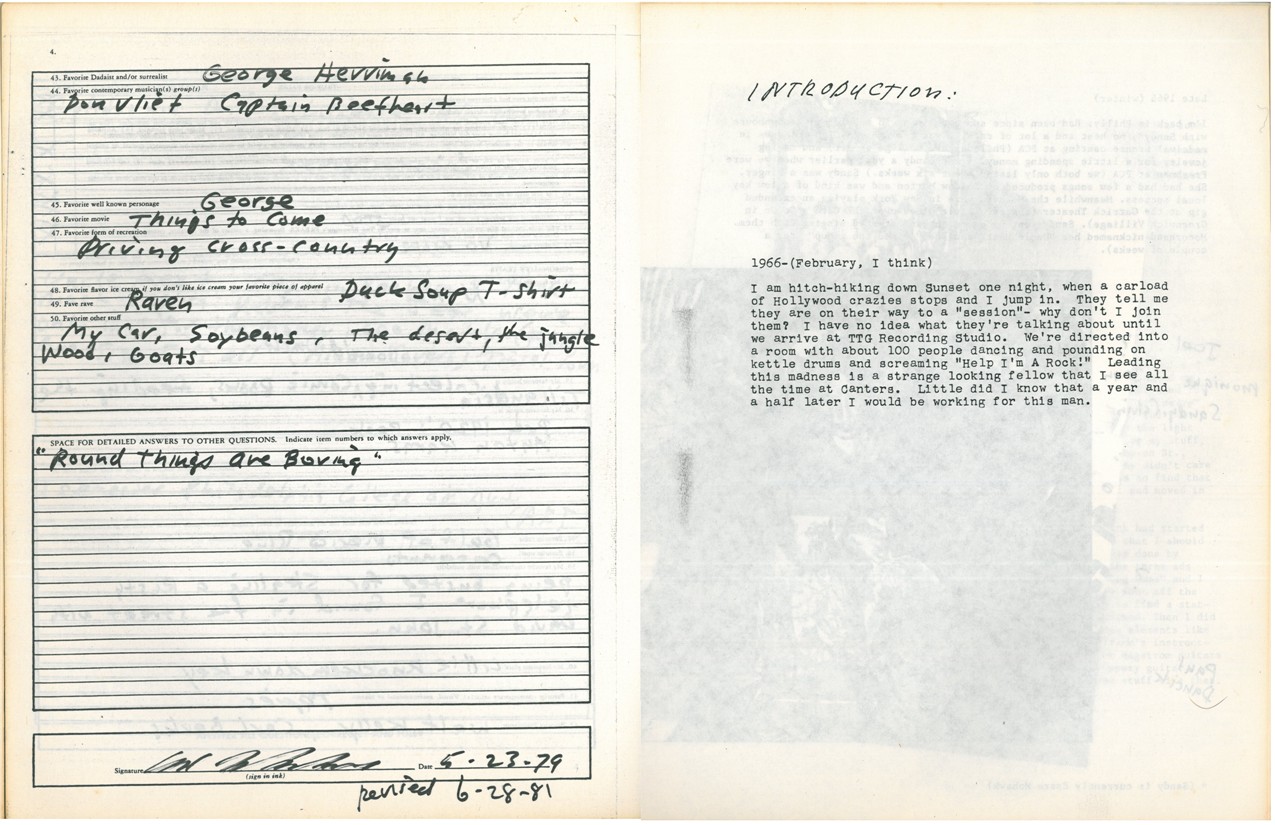 4.
43. Favorite Dadaist and/or surrealist George Herriman
44. Favorite contemporary musician(s) group(s)
Don Vliet Captain Beefheart
45. Favorite well known personage George
46. Favorite movie Things to Come
47. Favorite form of recreation
Driving cross-country
48. Favorite flavor ice cream if you don't like ice cream your favorite piece of apparel Duck Soup T-Shirt
49. Fave rave Raven
50. Favorite other stuff
My Car, Soybeans, The desert, the jungle
Wood, Goats
SPACE FOR DETAILED ANSWERS TO OTHER QUESTIONS. Indicate item numbers to which answers apply.
"Round Things are Boring"
Signature Date 5-23-79
(sign in ink)
revised 6-28-81
INTRODUCTION:
1966-(February, I think)
I am hitch-hiking down Sunset one night, when a carload
of Hollywood crazies stops and I jump in. They tell me
they are on their way to a "session"- why don't I join
them? I have no idea what they're talking about until
we arrive at TTG Recording Studio. We're directed into
a room with about 100 people dancing and pounding on
kettle drums and screaming "Help I'm A Rock!" Leading
this madness is a strange looking fellow that I see all
the time at Canters. Little did I know that a year and
a half later I would be working for this man.